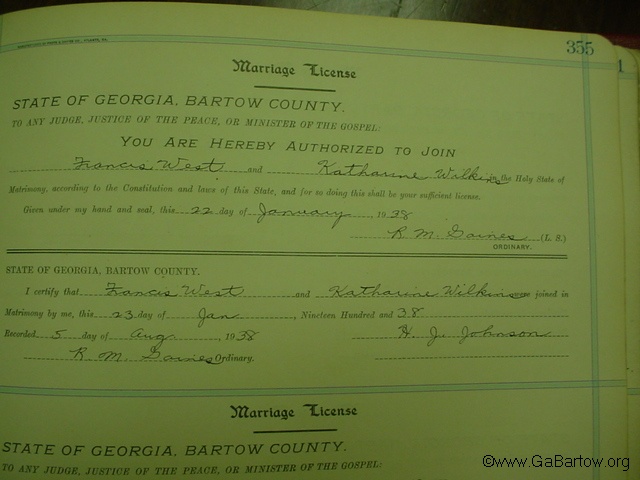 355
Marriage License
STATE OF GEORGIA, BARTOW COUNTY.
TO ANY JUDGE, JUSTICE OF THE PEACE, OR MINISTER OF THE GOSPEL:
YOU ARE HEREBY AUTHORIZED TO JOIN
Francis West and Katharine Wilkins in the Holy State of
Matrimony, according to the Constitution and laws of this State, and for so doing this shall be your sufficient license.
Given under my hand and seal, this 22 day of January 1938
R. M. Gaines (L. S.)
ORDINARY.
STATE OF GEORGIA, BARTOW COUNTY.
I certify that Francis West and Katharine Wilkins were joined in
Matrimony by me, this 23 day of Jan, Nineteen Hundred and 38
Recorded 5 day of Aug. 1938 H. J. Johnson
R. M. Gaines Ordinary.
Marriage License
STATE OF GEORGIA, BARTOW COUNTY.
TO ANY JUDGE, JUSTICE OF THE PEACE, OR MINISTER OF THE GOSPEL:
1
©www.GaBartow.org